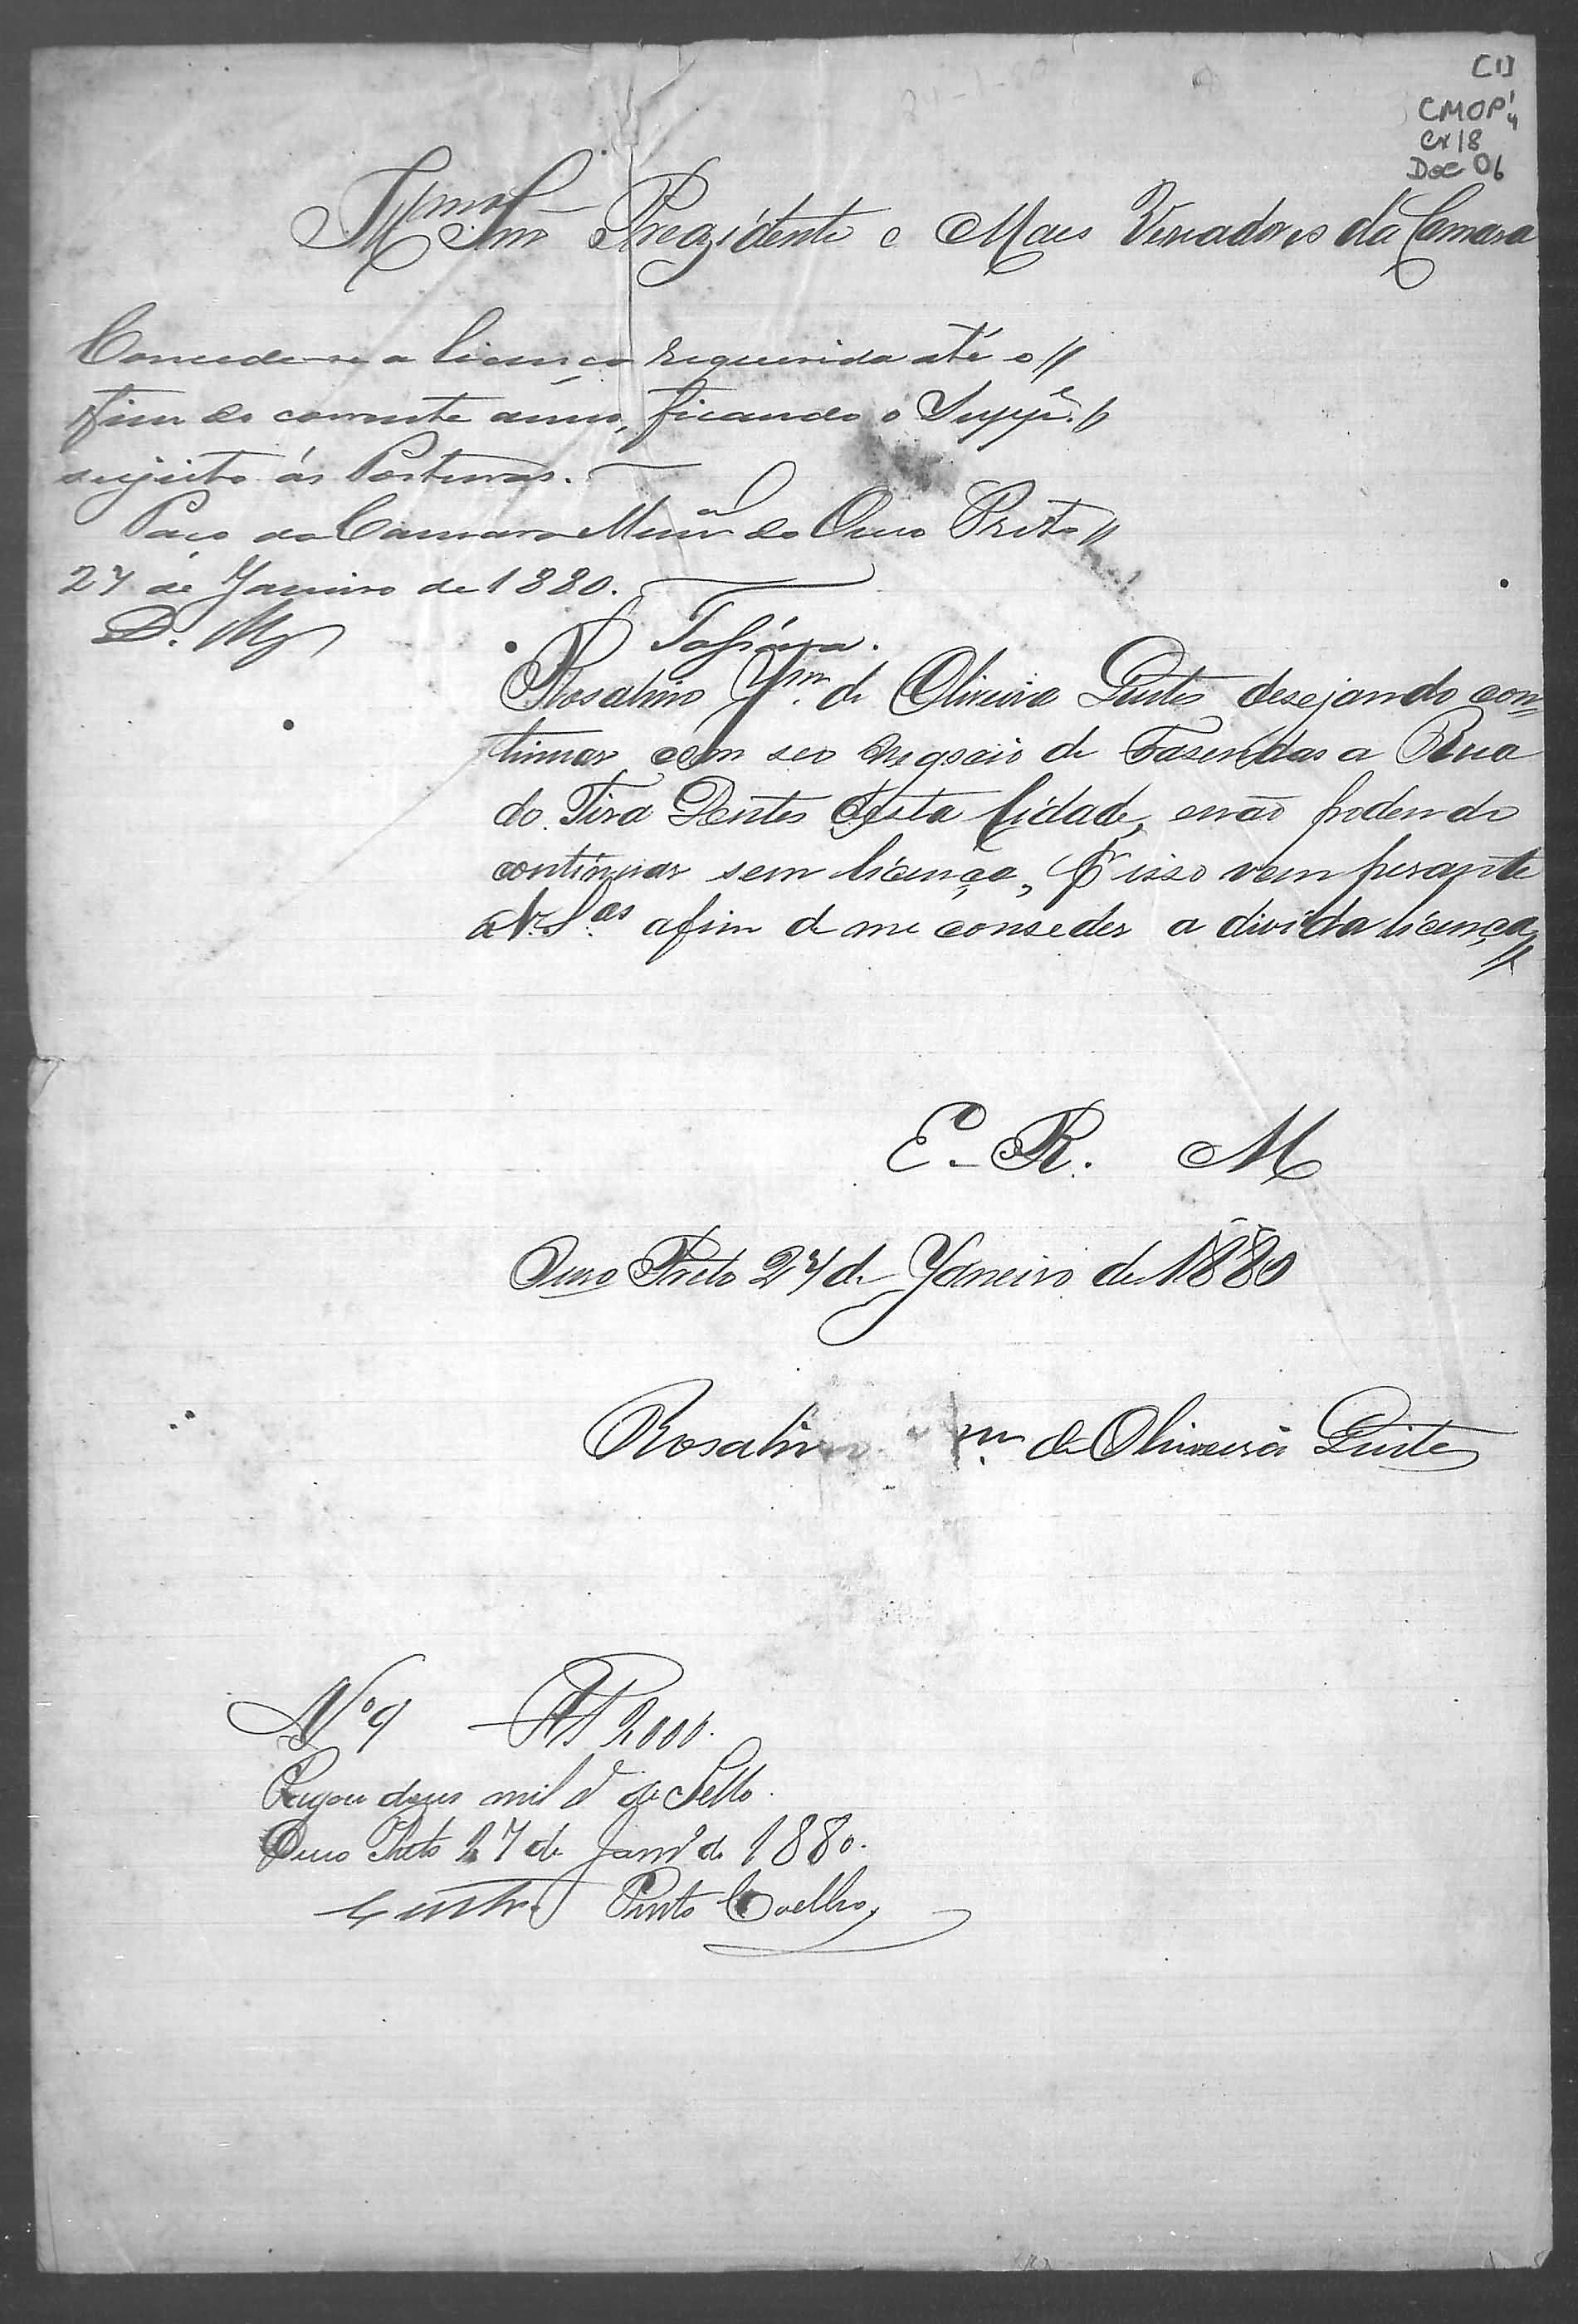 [1]
CMOP 1/4
Cx 18
Doc 06
Illmo Snr Prezidente e Mais Veriadores da Camara
Concede-se a licença requerida até o //
fim do corrente anno, ficando o Suppe. //
sujeito ás Posturas.
Paço da Camara Munal do Ouro Preto //
27 de Janeiro de 1880.
D. M
Rosalino de Oliveira Leite desejando con=
tinuar com seo negocio de Fasendas a Rua
do Tira Dentes desta Cidade, enão podendo
continuar sem licença, Pr isso vem perante
a V. Sas afim de me conseder a divida licença //
E. R. M
Ouro Preto 27 de Janeiro de 1880
Rosalino de Oliveira Leite
No 9 Rs 2000.
Pagou dous mil rs de Sello.
Ouro Preto 27 de Janro de 1880.
Pinto Coelho